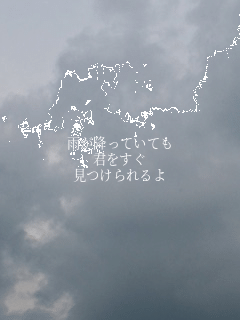 雨が降っていても
君をすぐ
見つけられるよ